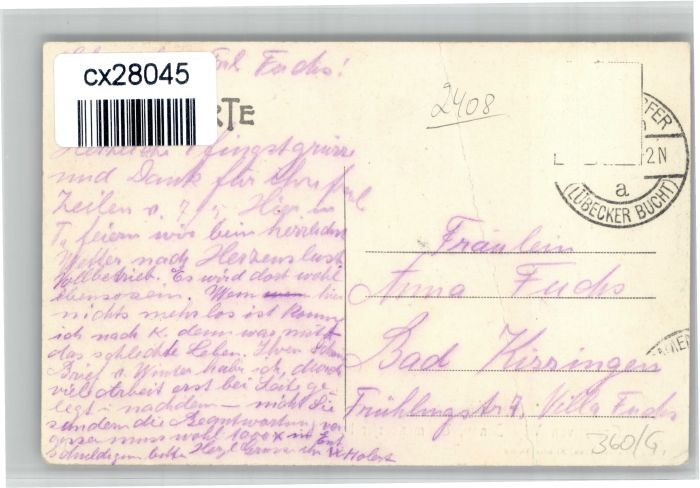 cx28045
Frl. Fuchs!
RTE
2408
Herzliche Pfingstgrüsse
und Dank für Ihre frdl.
Zeilen v. 7. 5. Hier in
T. feiern wir bei herrlichem
Wetter nach Herzenslust
Vollbetrieb. Es wird dort wohl
ebenso sein. Wenn hier
nichts mehr los ist komme
ich nach K. denn was nützt
das schlechte Leben. Ihren
Brief v. Winter habe ich, durch
viel Arbeit erst bei Seite ge
legt - nachdem - nicht Sie
sondern die Beantwortung ver
gessen muss wohl 1000 x um Ent
schuldigung bitten Herzl. Grüsse Ihr
Fräulein
Anna Fuchs
Bad Kissingen
Frühlingstr 7, Villa Fuchs
2N
a
(LÜBECKER BUCHT)
360/G.